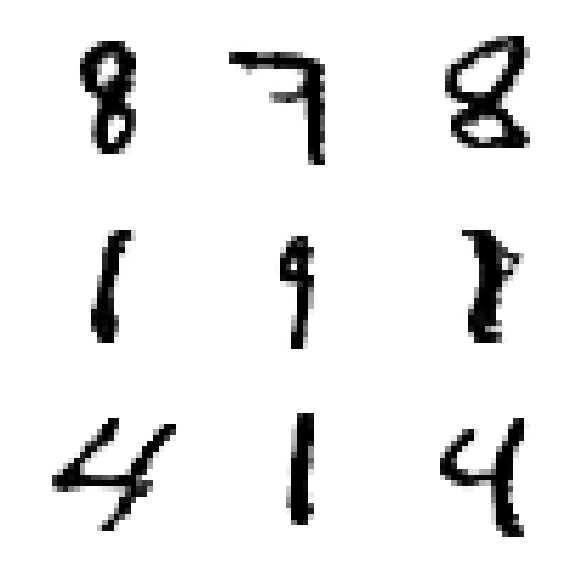 8 7 8
1 9 8
4 1 4